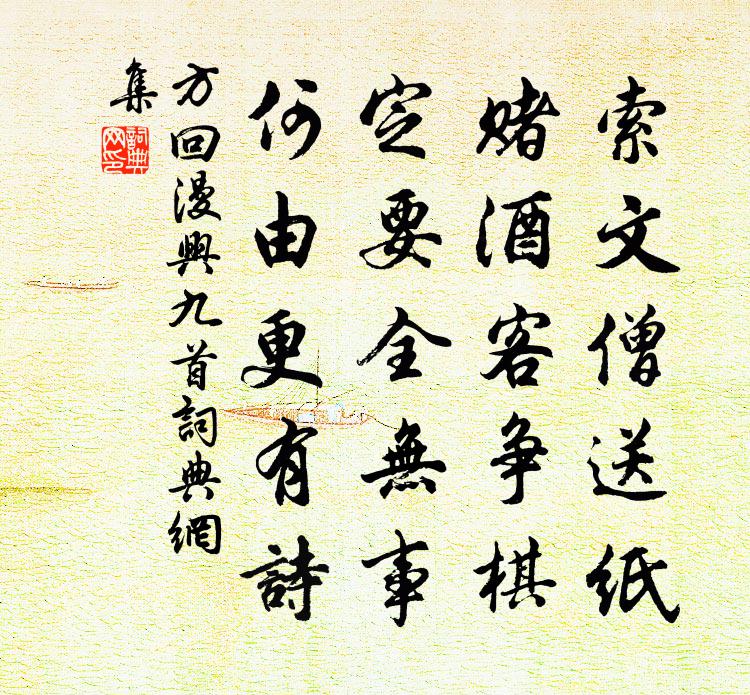 索文僧送紙
賭酒客争棋
定要全無事
何由更有詩
方回漫興九首詞典網
集
詞典網印